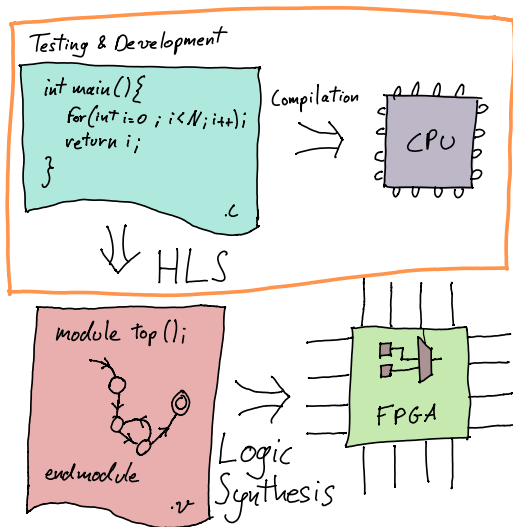 Testing & Development
int main(){
for(int i=0; i<N; i++);
return i;
}
.c
Compilation
CPU
HLS
module top();
endmodule
.v
Logic
Synthesis
FPGA